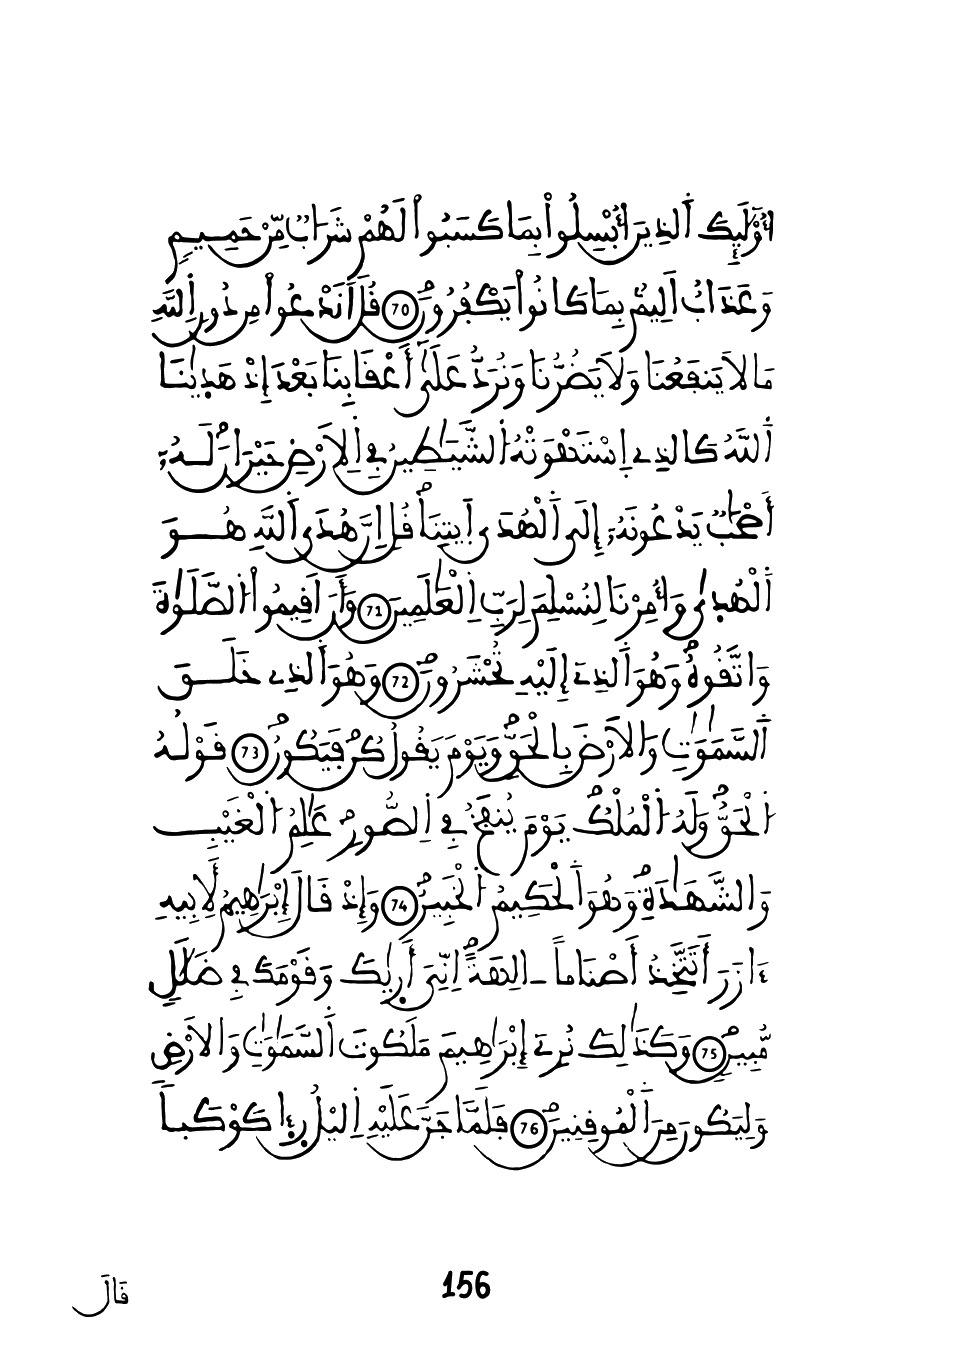 اُوْلَٰٓئِكَ اَ۬لذِينَ أُبْسِلُواْ بِمَا كَسَبُواْ لَهُمْ شَرَابٞ مِّنْ حَمِيمٖ
وَعَذَابٌ اَلِيمُۢ بِمَا كَانُواْ يَكْفُرُونَۖ 70 قُلَ اَنَدْعُواْ مِن دُونِ اِ۬للَّهِ
مَا لَا يَنفَعُنَا وَلَا يَضُرُّنَا وَنُرَدُّ عَلَىٰٓ أَعْقَابِنَا بَعْدَ إِذْ هَدٜيٰنَا
اَ۬للَّهُ كَالذِے اِ۪سْتَهْوَتْهُ اُ۬لشَّيَٰطِينُ فِے اِ۬لَارْضِ حَيْرَانَۖ لَهُۥٓ
أَصْحَٰبٞ يَدْعُونَهُۥٓ إِلَى اَ۬لْهُدَى اَ۪يتِنَاۖ قُلِ انَّ هُدَى اَ۬للَّهِ هُوَ
اَ۬لْهُد۪ىٰ وَأُمِرْنَا لِنُسْلِمَ لِرَبِّ اِ۬لْعَٰلَمِينَ 71 وَأَنَ اَقِيمُواْ اُ۬لصَّلَوٰةَ
وَاتَّقُوهُۖ وَهُوَ اَ۬لذِےٓ إِلَيْهِ تُحْشَرُونَۖ 72 وَهُوَ اَ۬لذِے خَلَقَ
اَ۬لسَّمَٰوَٰتِ وَالَارْضَ بِالْحَقِّۖ وَيَوْمَ يَقُولُ كُن فَيَكُونُۖ 73 قَوْلُهُ
اُ۬لْحَقُّۖ وَلَهُ اُ۬لْمُلْكُۖ يَوْمَ يُنفَخُ فِے اِ۬لصُّورِۖ عَٰلِمُ اُ۬لْغَيْبِ
وَالشَّهَٰدَةِۖ وَهُوَ اَ۬لْحَكِيمُ اُ۬لْخَبِيرُۖ 74 وَإِذْ قَالَ إِبْرَٰهِيمُ لِأَبِيهِ
ءَازَرَ أَتَتَّخِذُ أَصْنَاماً ـ الِهَةًۖ اِنِّيَ أَر۪يٰكَ وَقَوْمَكَ فِے ضَلَٰلٖ
مُّبِينٖۖ 75 وَكَذَٰلِكَ نُرِےٓ إِبْرَٰهِيمَ مَلَكُوتَ اَ۬لسَّمَٰوَٰتِ وَالَارْضِ
وَلِيَكُونَ مِنَ اَ۬لْمُوقِنِينَۖ 76 فَلَمَّا جَنَّ عَلَيْهِ اِ۬ليْلُ ر۪ء۪ا كَوْكَباٗ
156
قَالَ